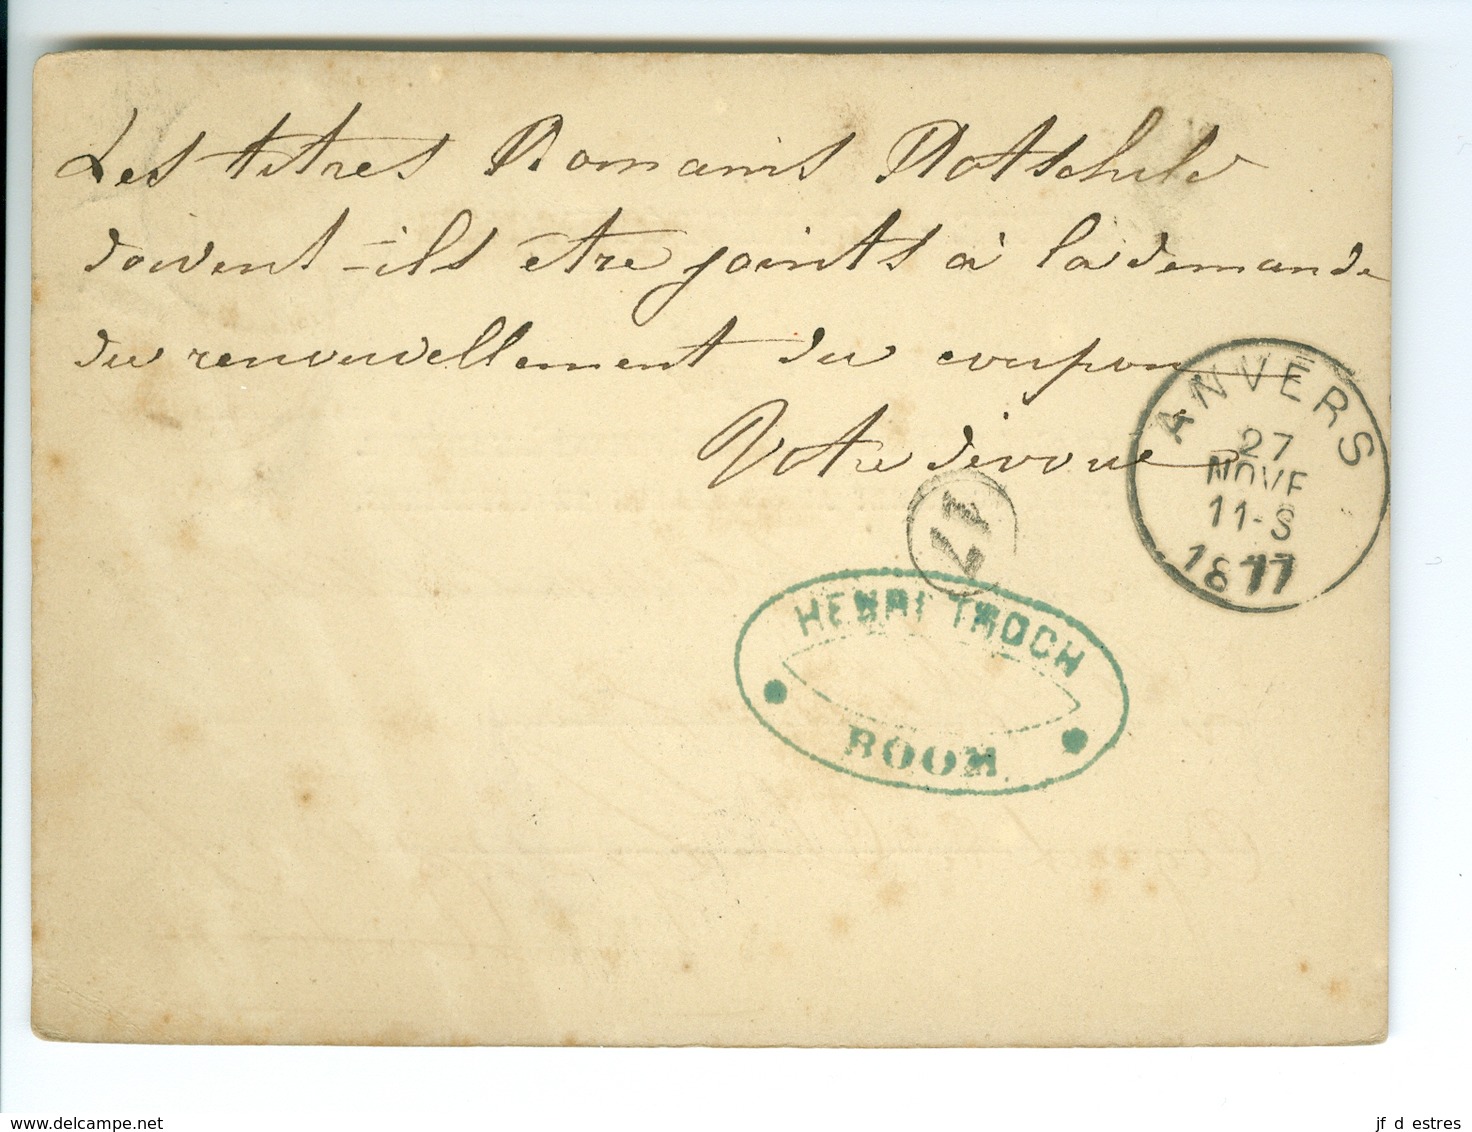 Les titres Romains Rotschild
doivent-ils etre joints à la demande
du renouvellement du coupon
Votre dévoué
ANVERS
27
NOVE
11-S
1877
17
HENRI TROCH
BOOM
www.delcampe.net
jf d estres